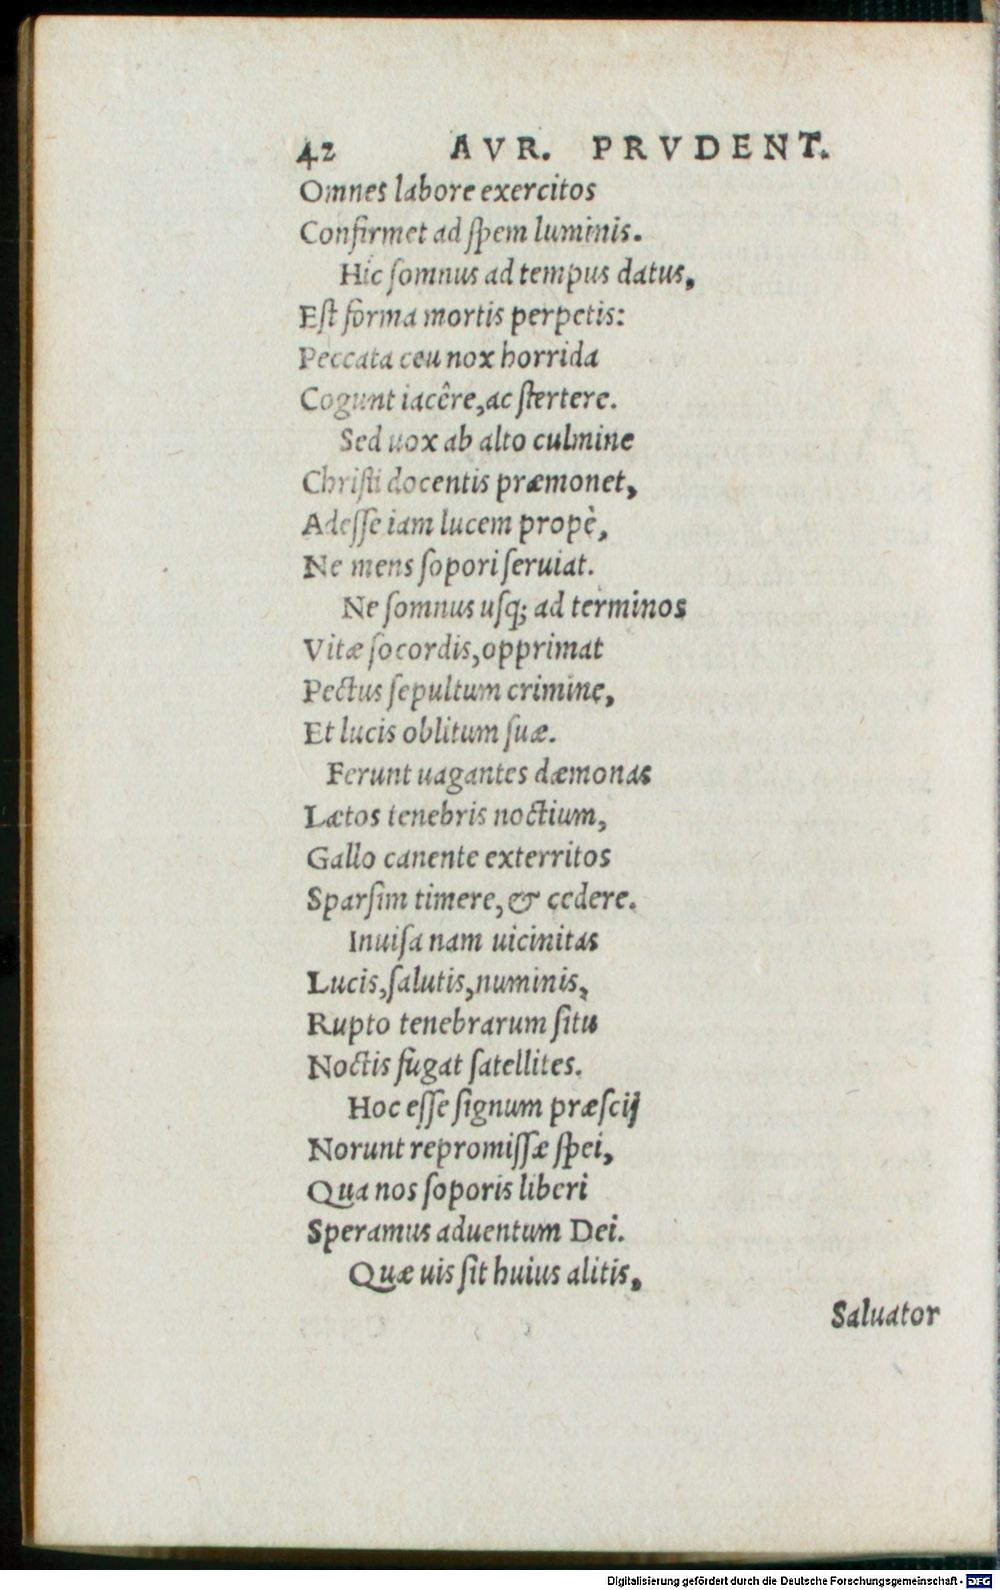 42 AVR. PRVDENT.
Omnes labore exercitos
Confirmet ad ſpem luminis.
Hic ſomnus ad tempus datus,
Eſt forma mortis perpetis:
Peccata ceu nox horrida
Cogunt iacêre, ac ſtertere.
Sed uox ab alto culmine
Chriſti docentis præmonet,
Adeſſe iam lucem propè,
Ne mens ſopori ſeruiat.
Ne ſomnus uſq; ad terminos
Vitæ ſocordis, opprimat
Pectus ſepultum crimine,
Et lucis oblitum ſuæ.
Ferunt uagantes dæmonas
Lætos tenebris noctium,
Gallo canente exterritos
Sparſim timere, & cedere.
Inuiſa nam uicinitas
Lucis, ſalutis, numinis,
Rupto tenebrarum ſitu
Noctis fugat ſatellites.
Hoc eſſe ſignum præſcij
Norunt repromiſſæ ſpei,
Qua nos ſoporis liberi
Speramus aduentum Dei.
Quæ uis ſit huius alitis,
Saluator
Digitalisierung gefördert durch die Deutsche Forschungsgemeinschaft - DFG